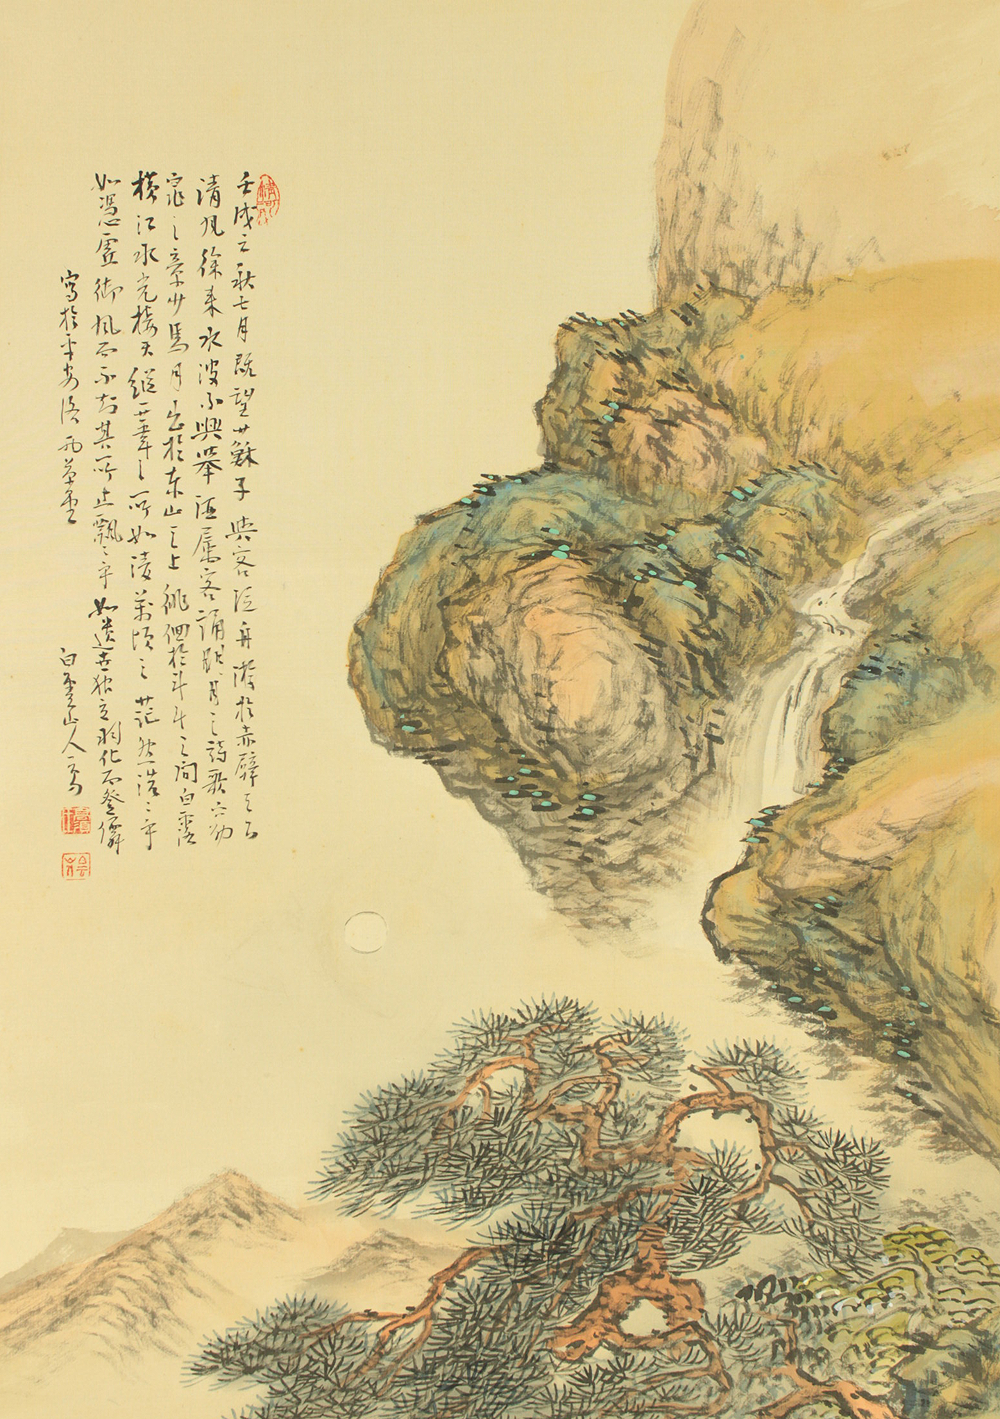 壬戌之秋七月既望蘇子與客泛舟游於赤壁之下
清風徐来水波不興舉酒属客誦明月之詩歌窈
窕之章少焉月出於東山之上徘徊於斗牛之間白露
横江水光接天縱一葦之所如凌萬頃之茫然浩〻乎
如憑虚御風而不知其所止飄〻乎如遺世独立羽化而登僊
寫於平安洛西草堂
白雲山人寫